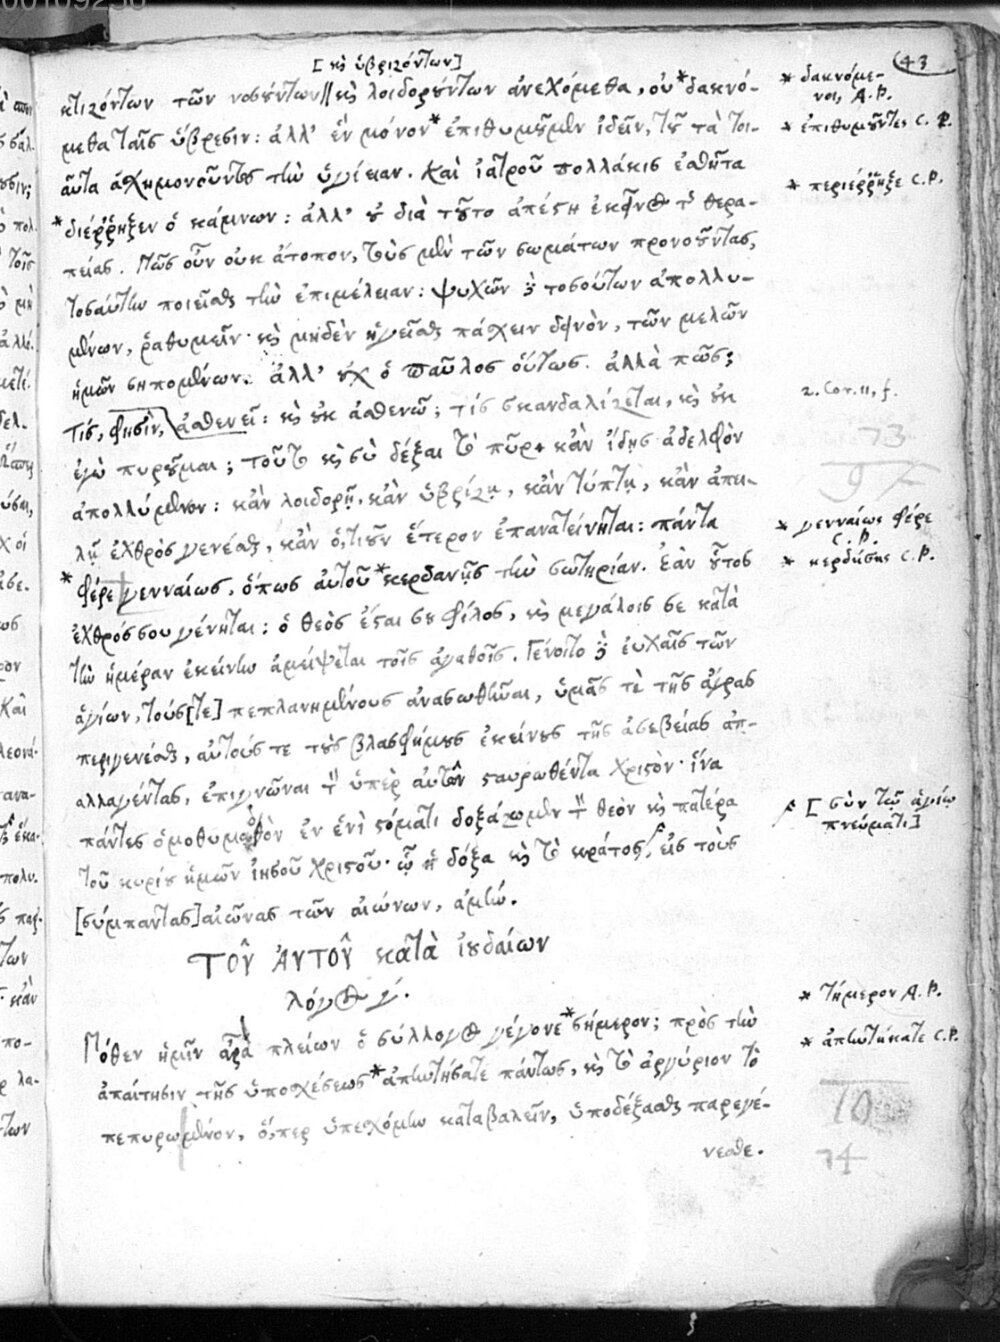 43
[κỳ ὑβριζόντων]
κτιζόντων τῶν νοσούντων// κỳ λοιδορούντων ἀνεχόμεθα, οὐ *δακνό-
μεθα ταῖς ὕβρεσιν: ἀλλ' ἓν μόνον* ἐπιθυμοῦμεν ἰδεῖν, τοῦ τὰ τοι-
αῦτα ἀσχημονοῦντος τὴν ὑγίειαν. καὶ ἰατροῦ πολλάκις ἐσθῆτα
*διέῤῥηξεν ὁ κάμνων: ἀλλ' οὐ διὰ τοῦτο ἀπέστη ἐκεῖνος τῆς θερα-
πείας. Πῶς οὖν οὐκ ἄτοπον, τοὺς μὲν τῶν σωμάτων προνοοῦντας,
τοσαύτην ποιεῖσθαι τὴν ἐπιμέλειαν: ψυχῶν δὲ τοσούτων ἀπολλυ-
μένων, ῥαθυμεῖν· κỳ μηδὲν ἡγεῖσθαι πάσχειν δεινὸν, τῶν μελῶν
ἡμῶν σηπομένων. ἀλλ' οὐχ ὁ παῦλος οὕτως. ἀλλὰ πῶς;
τίς, φησὶν, ἀσθενεῖ: κỳ οὐκ ἀσθενῶ; τίς σκανδαλίζεται, κỳ οὐκ
ἐγὼ πυροῦμαι; τοῦτο κỳ σὺ δέξαι τὸ πῦρ+ κἂν ἴδῃς ἀδελφὸν
ἀπολλύμενον: κἂν λοιδορῇ, κἂν ὑβρίζῃ, κἂν τύπτῃ, κἂν ἀπει-
λῇ ἐχθρὸς γενέσθαι, κἂν ὁ,τιοῦν ἕτερον ἐπανατείνηται: πάντα
*φέρε γενναίως, ὅπως αὐτοῦ *κερδανῇς τὴν σωτηρίαν. Ἐὰν οὗτος
ἐχθρός σου γένηται: ὁ θεὸς ἔσται σου φίλος, κỳ μεγάλοις σε κατὰ
τὴν ἡμέραν ἐκείνην ἀμείψεται τοῖς ἀγαθοῖς. Γένοιτο δὲ εὐχαῖς τῶν
ἁγίων, τούς[τε] πεπλανημένους ἀνασωθῆναι, ὑμᾶς τὲ τῆς ἄγρας
περιγενέσθαι, αὐτούς τε τοὺς βλασφήμους ἐκείνους τῆς ἀσεβείας ἀπ-
αλλαγέντας, ἐπιγνῶναι τὸν ὑπὲρ αὐτῶν σταυρωθέντα χριστὸν· ἵνα
πάντες ὁμοθυμαδὸν ἐν ἑνὶ στόματι δοξάζωμεν τὸν θεὸν κỳ πατέρα
τοῦ κυρίου ἡμῶν ἰησοῦ χριστοῦ· ᾧ ἡ δόξα κỳ τὸ κράτος, εἰς τοὺς
[σύμπαντας] αἰῶνας τῶν αἰώνων, ἀμήν.
ΤΟῦ ἈΥΤΟῦ κατὰ ἰουδαίων
λόγος γ΄.
Πόθεν ἡμῖν ἆρα πλείων ὁ σύλλογος γέγονε *σήμερον; πρὸς τὴν
ἀπαίτησιν τῆς ὑποσχέσεως *ἀπηντήσατε πάντως, κỳ τὸ ἀργύριον τὸ
πεπυρωμένον, ὅ,περ ὑπεσχόμην καταβαλεῖν, ὑποδέξασθαι παρεγέ-
νεσθε.
* δακνόμε-
νοι, A.P.
* ἐπιθυμοῦντες C.P.
* περιέῤῥηξε C.P.
2. Cor. 11, f.
73
* γενναίως φέρε
C.P.
* κερδήσῃς C.P.
[σὺν τῷ ἁγίῳ
πνεύματι]
* τήμερον A.P.
* ἀπηντήκατε C.P.
10
74